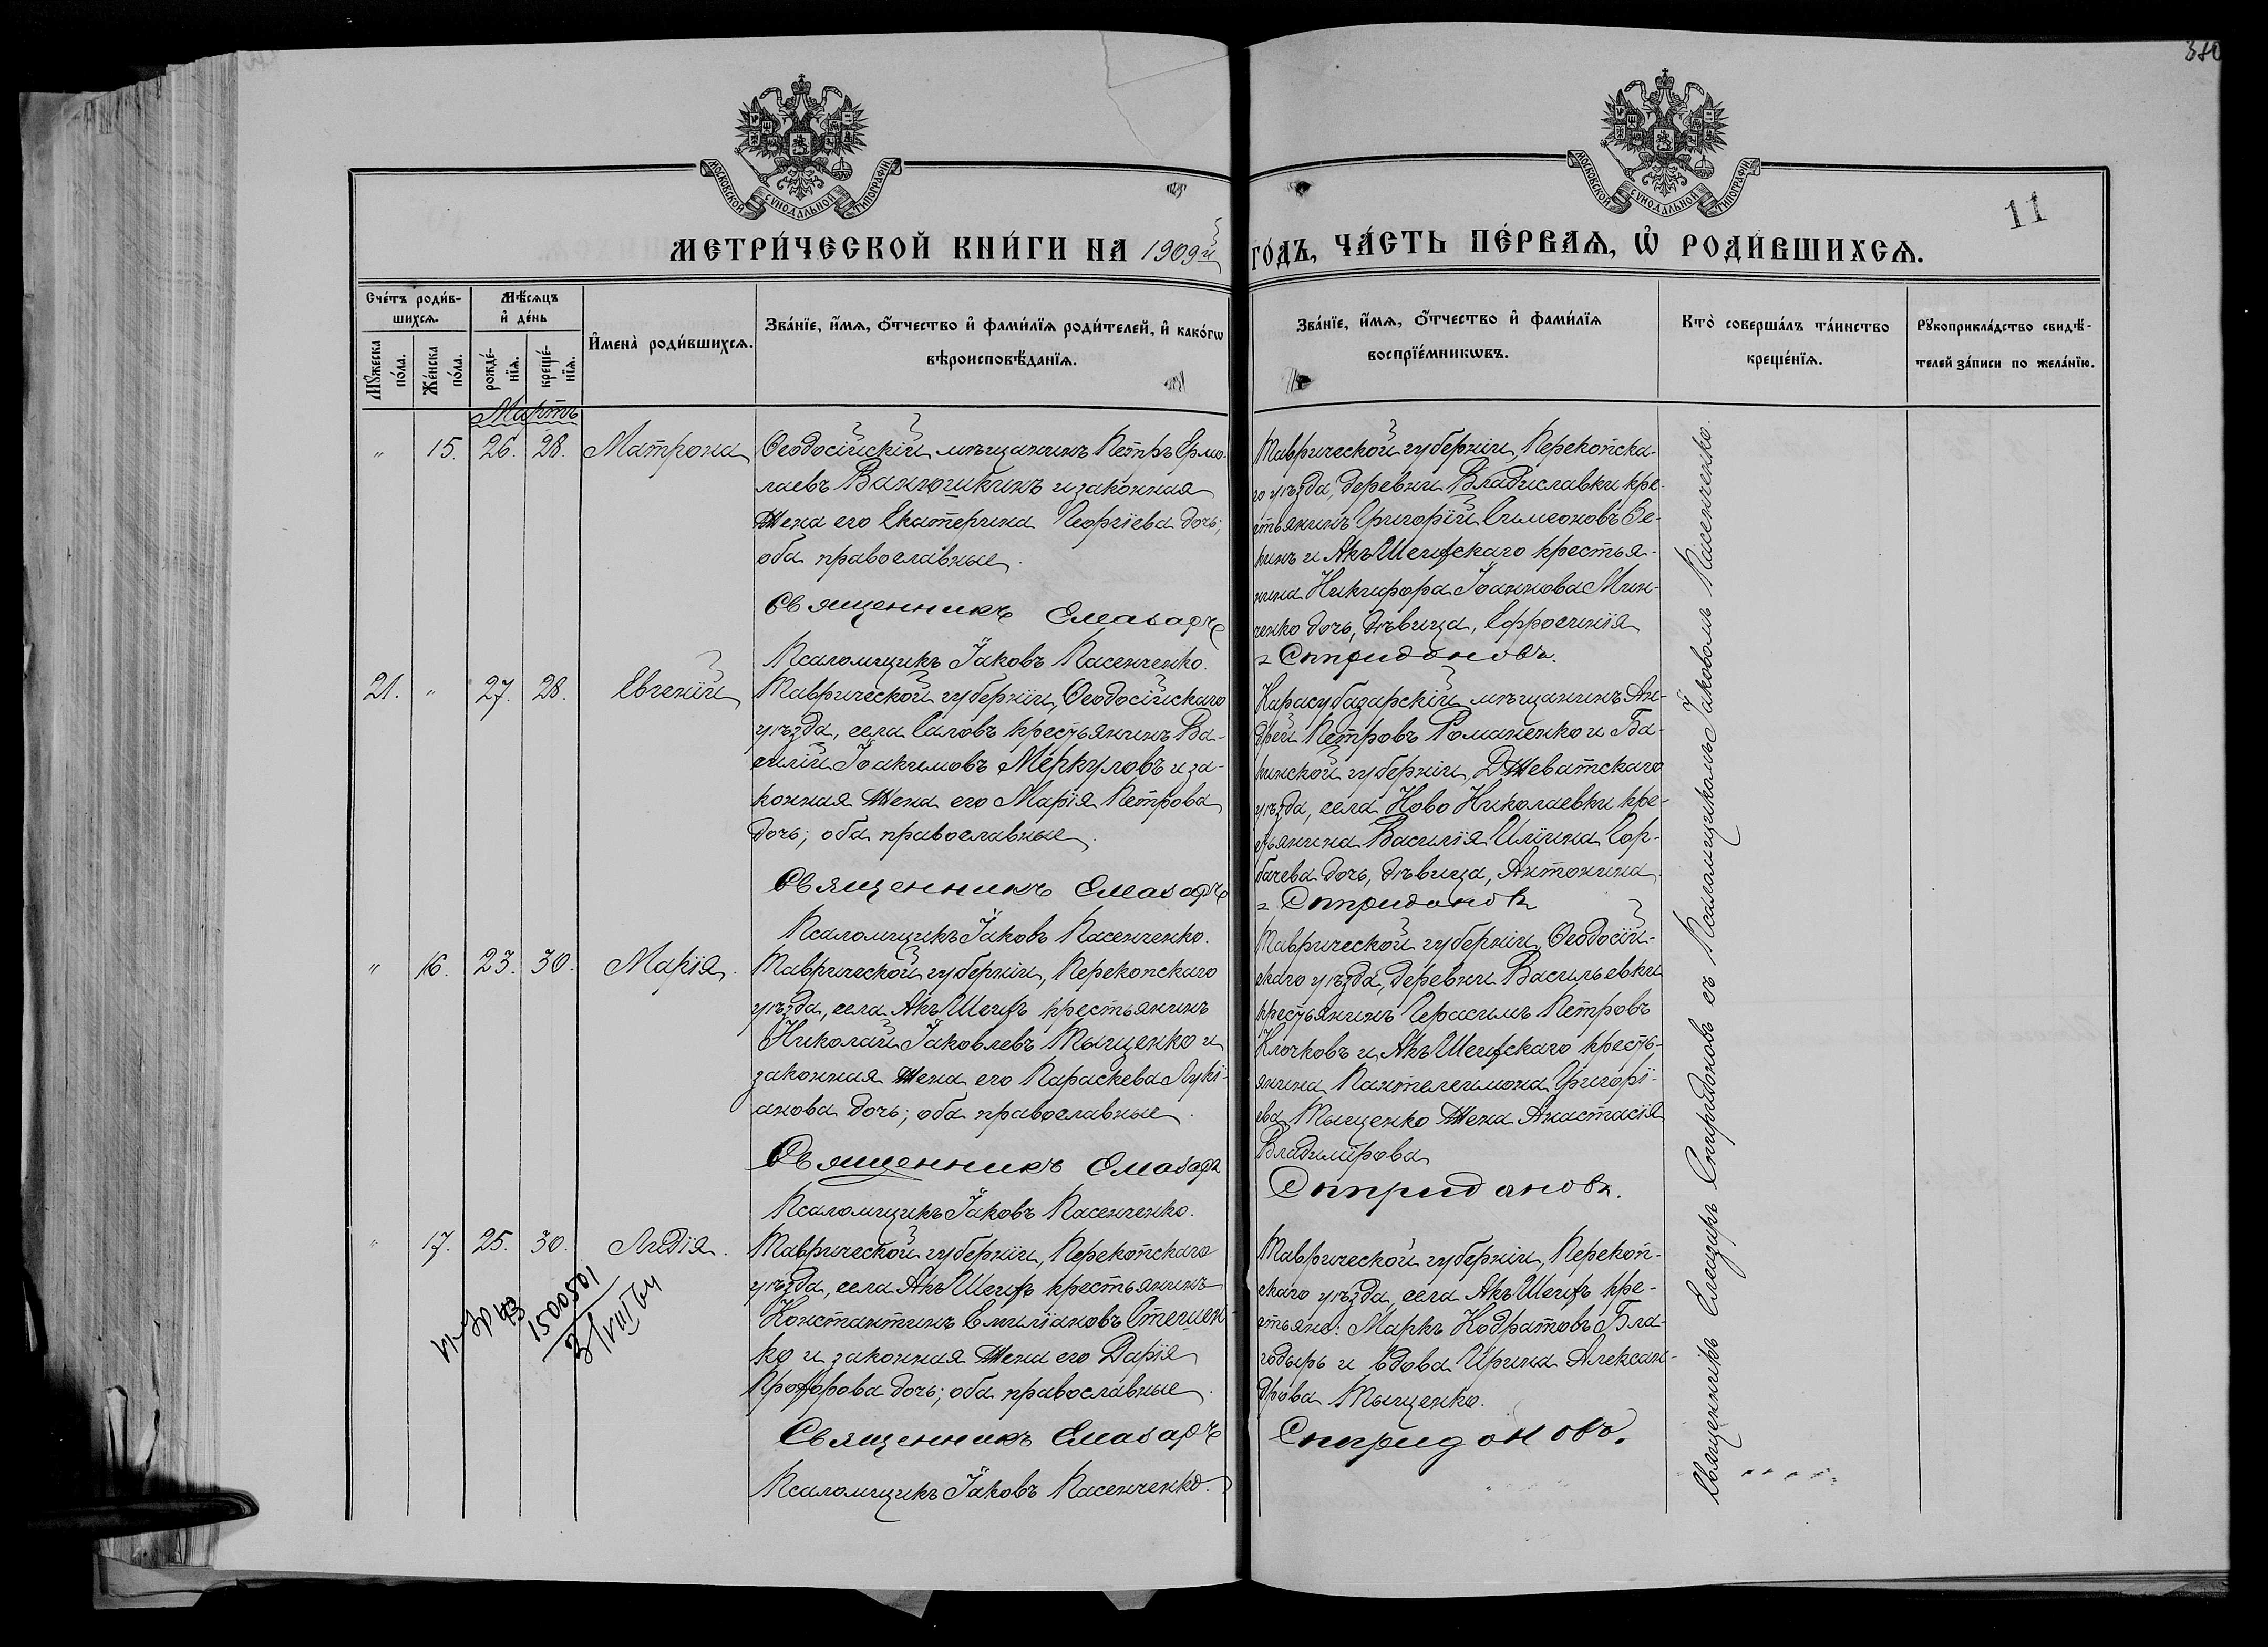 380
МОСКОВСКОЙ СѴНОДАЛЬНОЙ ТИПОГРАФІИ
МОСКОВСКОЙ СѴНОДАЛЬНОЙ ТИПОГРАФІИ
11
МЕТРИ́ЧЕСКОЙ КНИ́ГИ НА 1909й ГО́ДЪ, ЧА́СТЬ ПЕ́РВАѦ, Ѡ҆ РОДИ́ВШИХСѦ.
Сче́тъ роди́в-
шихсѧ.
Мꙋ́жеска
по́ла.
Же́нска
по́ла.
Мѣ́сѧцъ
и҆ де́нь
рожде́-
нїѧ.
креще́-
нїѧ.
И҆мена̀ роди́вшихсѧ.
Зва́нїе, и҆́мѧ, ѻ҆́тчество и҆ фами́лїѧ роди́телей, и҆ како́гѡ
вѣроисповѣ́данїѧ.
Зва́нїе, и҆́мѧ, ѻ҆́тчество и҆ фами́лїѧ
воспрїе́мникѡвъ.
Кто̀ соверша́лъ та́инство
креще́нїѧ.
Рꙋкоприкла́дство свидѣ́-
телей за́писи по жела́нїю.
Мартъ
" 15. 26. 28. Матрона
Ѳеодосійскій мѣщанинъ Петръ Ермо-
лаевъ Ванюшкинъ и законная
жена его Екатерина Георгіева дочь;
оба православные.
Священникъ Елеазаръ
Псаломщикъ Іаковъ Касенченко.
Таврической губерніи, Перекопска-
го уѣзда, деревни Владиславки кре-
стьянинъ Григорій Симеоновъ Зе-
нинъ и Акъ Шеихскаго крестья-
нина Никифора Іоаннова Мин-
ченко дочь, дѣвица, Ефросинія
Спиридоновъ.
21. " 27. 28. Евгеній
Таврической губерніи, Ѳеодосійскаго
уѣзда, села Саловъ крестьянинъ Ва-
силій Іоакимовъ Меркуловъ и за-
конная жена его Марія Петрова
дочь; оба православные.
Священникъ Елеазаръ
Псаломщикъ Іаковъ Касенченко.
Карасубазарскій мѣщанинъ Ан-
дрей Петровъ Романенко и Ба-
кинской губерніи, Джеватскаго
уѣзда, села Ново Николаевки кре-
стьянина Василія Иліина Гор-
бачева дочь, дѣвица, Антонина
Спиридоновъ
" 16. 23. 30. Марія.
Таврической губерніи, Перекопскаго
уѣзда, села Акъ Шеихъ крестьянинъ
Николай Іаковлевъ Тыщенко и
законная жена его Параскева Лукі-
анова дочь; оба православные.
Священникъ Елеазаръ
Псаломщикъ Іаковъ Касенченко.
Таврической губерніи, Ѳеодосій-
скаго уѣзда, деревни Васильевки
крестьянинъ Герасимъ Петровъ
Клочковъ и Акъ Шеихскаго кресть-
янина Пантелеимона Григорі-
ева Тыщенко жена Анастасія
Владимірова
Спиридоновъ.
" 17. 25. 30. Лидія.
Таврической губерніи, Перекопскаго
уѣзда, села Акъ Шеихъ крестьянинъ
Константинъ Емиліановъ Стешен-
ко и законная жена его Дарія
Прохорова дочь; оба православные.
Священникъ Елеазаръ
Псаломщикъ Іаковъ Касенченко.
Таврической губерніи, Перекоп-
скаго уѣзда, села Акъ Шеихъ кре-
стьяне: Маркъ Кодратовъ Бла-
годырь и вдова Ирина Алексан-
дрова Тыщенко.
Спиридоновъ.
1500501
31/VIII 64
Священникъ Елеазаръ Спиридоновъ съ Псаломщикомъ Іаковомъ Касенченко.